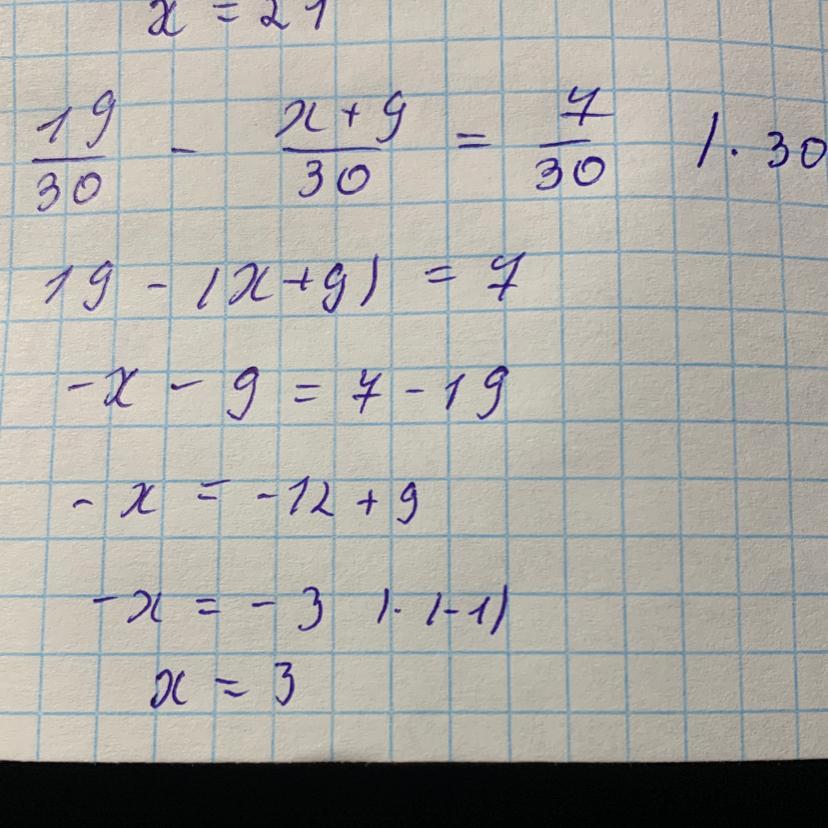 x = 21
19/30 - (x + 9)/30 = 7/30 | · 30
19 - (x + 9) = 7
-x - 9 = 7 - 19
-x = -12 + 9
-x = -3 | · (-1)
x = 3